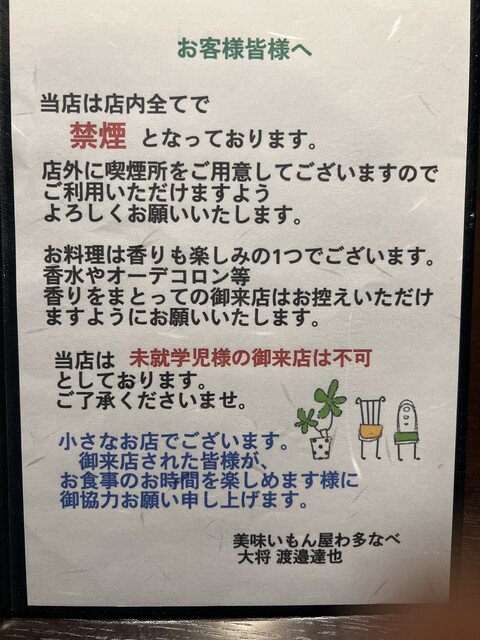 お客様皆様へ
当店は店内全てで
禁煙 となっております。
店外に喫煙所をご用意してございますので
ご利用いただけますよう
よろしくお願いいたします。
お料理は香りも楽しみの1つでございます。
香水やオーデコロン等
香りをまとっての御来店はお控えいただけ
ますようにお願いいたします。
当店は 未就学児様の御来店は不可
としております。
ご了承くださいませ。
小さなお店でございます。
御来店された皆様が、
お食事のお時間を楽しめます様に
御協力お願い申し上げます。
美味いもん屋わ多なべ
大将 渡邉達也